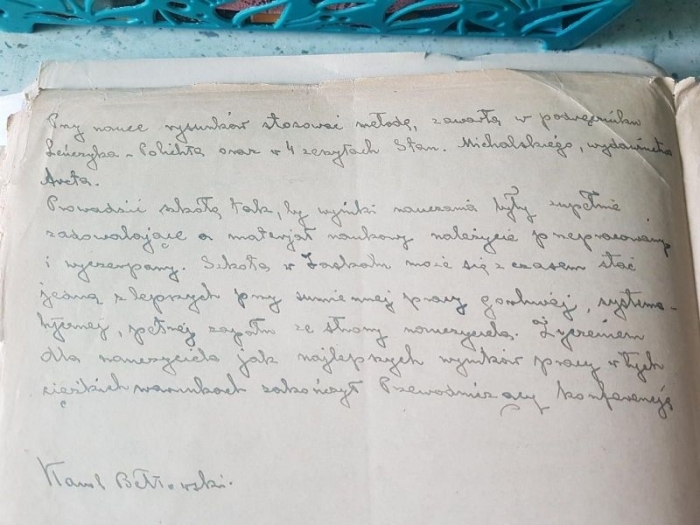 Przy nauce rysunków stosować metodę, zawartą w podręczniku
Leńczyka - Polichta oraz w 4 zeszytach Stan. Michalskiego, wydawnictwa
Arcta.
Prowadzić szkołę tak, by wyniki nauczania były zupełnie
zadowalające a materjał naukowy należycie przepracowany
i wyczerpany. Szkoła w może się z czasem stać
jedną z lepszych przy sumiennej pracy gorliwej, systema-
tycznej, pełnej zapału ze strony nauczyciela. Życzeniem
dla nauczyciela jak najlepszych wyników pracy w tych
ciężkich warunkach zakończył Przewodniczący konferencję
Kamil Bełtowski.